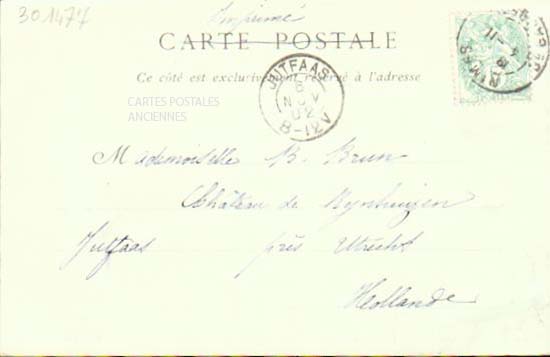 301477
Imprimé
CARTE POSTALE
Ce côté est exclusivement réservé à l'adresse
JUTFAAS
8
NOV
02
8-12V
NIMES
CARTES POSTALES
ANCIENNES
Mademoiselle B. Brun
Château de Rynhuizen
Jutfaas près Utrecht
Hollande